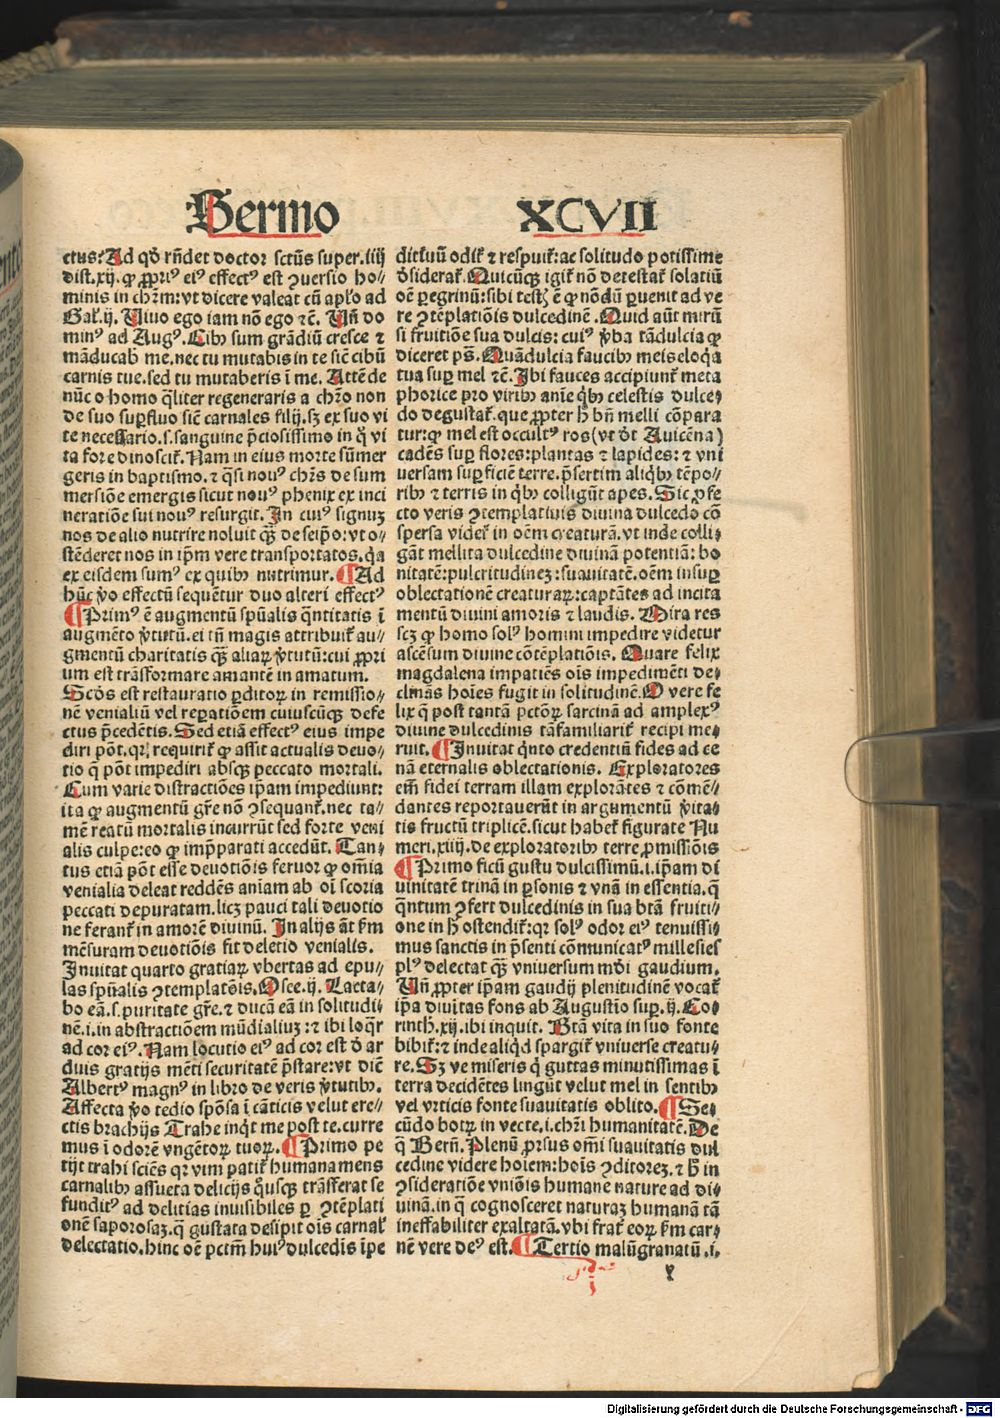 Sermo XCVII
ctus? Ad qd̛ rn̄det doctor sctūs super .iiij
dist. xij. ꝙ ꝓpriꝰ eiꝰ effectꝰ est ꝯuersio ho⸗
minis in chr̄m: vt dicere valeat cū apl̄o ad
Gal̛. ij. Uiuo ego iam nō ego ⁊c̄. Un̄ do
minꝰ ad Augꝰ. Cibꝰ sum grādiū cresce ⁊
māducabꝭ me. nec tu mutabis in te sic̄ cibū
carnis tue. sed tu mutaberis ī me. Attēde
nūc o homo q̄liter regeneraris a chr̄o non
de suo suꝑfluo sic̄ carnales filij. sꝫ ex suo vi
te necessario .s. sanguine p̄ciosissimo in q̊ vi
ta fore dinoscit̛. Nam in eius morte sūmer
geris in baptismo. ⁊ q̄si nouꝰ chr̄s de sum
mersiōe emergis sicut nouꝰ phenix ex inci
neratiōe sui nouꝰ resurgit. In cuiꝰ signuꝫ
nos de alio nutrire noluit q̄ꝫ de seip̄o: vt o⸗
stēderet nos in ip̄m vere transportatos. q̄a
ex eisdem sumꝰ ex quibꝰ nutrimur. ¶Ad
hūc v̊o effectū sequētur duo alteri effectꝰ
¶Primꝰ ē augmentū spūalis q̄ntitatis ī
augmēto v̛tutū. ei tn̄ magis attribuit̛ au⸗
gmentū charitatis q̄ꝫ aliaꝝ v̛tutū: cui ꝓpri
um est trāsformare amantē in amatum.
Scd̄s est restauratio ꝑditoꝝ in remissio⸗
nē venialiū vel reꝑatiōem cuiuscūqꝫ defe
ctus p̄cedētis. Sed etiā effectꝰ eius impe
diri pōt. qꝛ requirit̛ ꝙ assit actualis deuo⸗
tio q̄ pōt impediri absqꝫ peccato mortali.
Cum varie distractiōes ip̄am impediunt:
ita ꝙ augmentū gr̄e nō ꝯsequant̛. nec ta⸗
mē reatū mortalis incurrūt sed forte veni
alis culpe: eo ꝙ imp̄parati accedūt. Tan⸗
tus etiā pōt esse deuotiōis feruor ꝙ om̄ia
venialia deleat reddēs aniam ab oī scoria
peccati depuratam. licꝫ pauci tali deuotio
ne ferant̛ in amorē diuinū. In alijs āt ẜm
mēsuram deuotiōis fit deletio venialis.
Inuitat quarto gratiaꝝ vbertas ad epu⸗
las spūalis ꝯtemplatōis. Osee. ij. Lacta⸗
bo eā .s. puritate gr̄e. ⁊ ducā eā in solitudi⸗
nē .i. in abstractiōem mūdialiuꝫ: ⁊ ibi loq̄r
ad cor eiꝰ. Nam locutio eiꝰ ad cor est d̛ ar
duis gratijs mēti securitatē p̄stare: vt dic̄
Albertꝰ magnꝰ in libro de veris v̛tutibꝰ.
Affecta v̊o tedio spōsa ī cāticis velut ere⸗
ctis brachijs Trahe inq̄t me post te. curre
mus ī odorē vngētoꝝ tuoꝝ. ¶Primo pe
tijt trahi sciēs qꝛ vim patit̛ humana mens
carnalibꝰ assueta delicijs q̊usqꝫ trāsferat se
funditꝰ ad delitias inuisibiles ꝑ ꝯtēplati
onē saporosaꝫ. q̄ gustata desipit oīs carnal̛
delectatio. hinc oē pctm̄ huiꝰ dulcedis īpe
dit̛ vū odit̛ ⁊ respuit̛: ac solitudo potissime
d̛siderat̛. Quicūqꝫ igit̛ nō detestat̛ solatiū
oē ꝑegrinū: sibi testꝭ ē ꝙ nōdū ꝑuenit ad ve
re ꝯtēplatiōis dulcedinē. Quid aūt mirū
si fruitiōe sua dulcis: cuiꝰ v̛ba tādulcia ꝙ
diceret ps̄. Quādulcia faucibꝰ meis eloq̄a
tua suꝑ mel ⁊c̄. Ibi fauces accipiunt̛ meta
phorice pro viribꝰ anīe q̄bꝰ celestis dulce⸗
do degustat̛. que ꝓpter h̛ bn̄ melli cōpara
tur: ꝙ mel est occultꝰ ros (vt d̛t Auicēna)
cadēs suꝑ flores: plantas ⁊ lapides: ⁊ vni
uersam suꝑficiē terre. p̄sertim aliq̄bꝰ tēpo⸗
ribꝰ ⁊ terris in q̄bꝰ colligūt apes. Sic ꝓfe
cto veris ꝯtemplatiuis diuina dulcedo cō
spersa videt̛ in oēm creaturā. vt inde colli⸗
gāt mellita dulcedine diuinā potentiā: bo
nitatē: pulcritudineꝫ: suauitatē. oēm insuꝑ
oblectationē creaturaꝝ: captātes ad incita
mentū diuini amoris ⁊ laudis. Mira res
scꝫ ꝙ homo solꝰ homini impedire videtur
ascēsum diuine cōtēplatiōis. Quare felix
magdalena impatiēs oīs impedimēti de⸗
clinās hoīes fugit in solitudinē. O vere fe
lix q̄ post tantā pctōꝝ sarcinā ad amplexꝰ
diuine dulcedinis tāfamiliarit̛ recipi me⸗
ruit. ¶Inuitat q̄nto credentiū fides ad ce
nā eternalis oblectationis. Exploratores
em̄ fidei terram illam explorātes ⁊ cōmē⸗
dantes reportauerūt in argumentū v̛ita⸗
tis fructū triplicē. sicut habet̛ figurate Nu
meri. xiij. de exploratoribꝰ terre ꝓmissiōis
¶Primo ficū gustu dulcissimū .i. ip̄am di
uinitatē trinā in ꝑsonis ⁊ vnā in essentia. q̄
q̄ntum ꝯfert dulcedinis in sua btā fruiti⸗
one in h̛ ostendit̛: qꝛ solꝰ odor eiꝰ tenuissi⸗
mus sanctis in p̄senti cōmunicatꝰ millesies
plꝰ delectat q̄ꝫ vniuersum mūdi gaudium.
Un̄ ꝓpter ip̄am gaudij plenitudinē vocat̛
ip̄a diuitas fons ab Augustīo suꝑ. ij. Co⸗
rinth. xij. ibi inquit. Btā vita in suo fonte
bibit̛: ⁊ inde aliq̄d spargit̛ vniuerse creatu⸗
re. Sꝫ ve miseris q̄ guttas minutissimas ī
terra decidētes lingūt velut mel in sentibꝰ
vel vrticis fonte suauitatis oblito. ¶Se⸗
cūdo botꝝ in vecte .i. chr̄i humanitatē. De
q̄ Bern̄. Plenū ꝓrsus om̄i suauitatis dul
cedine videre hoīem: hoīs ꝯditoreꝫ. ⁊ h̛ in
ꝯsideratiōe vniōis humane nature ad di⸗
uinā. in q̄ cognosceret naturaꝫ humanā tā
ineffabiliter exaltatā. vbi frat̛ eoꝝ ẜm car⸗
nē vere deꝰ est. ¶Tertio malūgranatū .i.
Digitalisierung gefördert durch die Deutsche Forschungsgemeinschaft - DFG